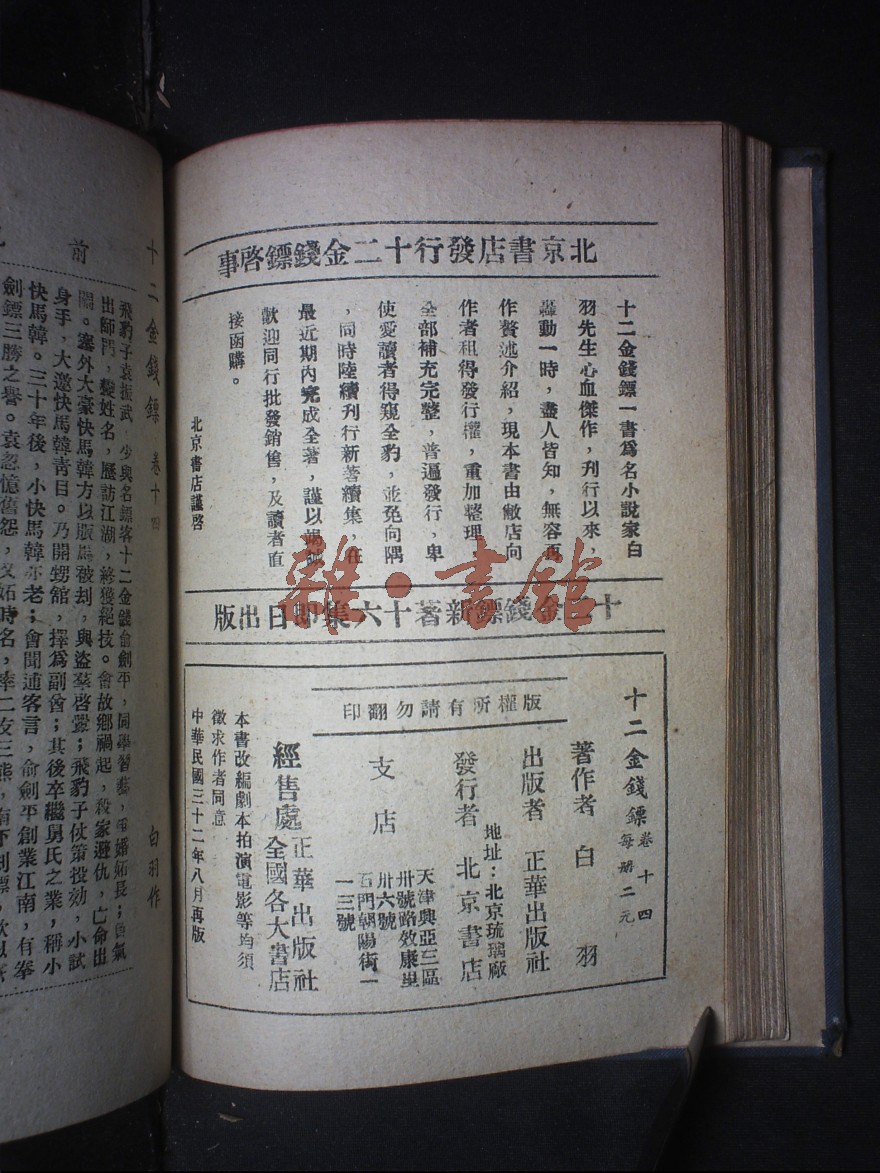 北京書店發行十二金錢鏢啓事
十二金錢鏢一書爲名小說家白
羽先生心血傑作，刊行以來，
轟動一時，盡人皆知，無容再
作贅述介紹，現本書由敝店向
作者租得發行權，重加整理
全部補充完整，普遍發行，卑
使愛讀者得窺全豹，並免向隅
，同時陸續刊行新著續集，在
最近期內完成全著，謹以竭誠
歡迎同行批發銷售，及讀者直
接函購。
北京書店謹啓
十二金錢鏢新著十六集即日出版
十二金錢鏢 卷十四 每册二元
版權所有請勿翻印
著作者 白羽
出版者 正華出版社
地址：北京琉璃廠
發行者 北京書店
支店
天津興亞三區
卅號路效康里
卅六號
石門朝陽街一
一三號
經售處 正華出版社
全國各大書店
本書改編劇本拍演電影等均須
徵求作者同意
中華民國三十二年八月再版
雜·書館
十二金錢鏢 卷十四 白羽作
前
飛豹子袁振武 少與名鏢客十二金錢俞劍平，同學習藝，爭婚妬長；負氣
出師門，變姓名，歷訪江湖，終獲絕技。會故鄉禍起，殺家避仇，亡命出
關。塞外大豪快馬韓方以販馬被刦，與盜羣啓釁；飛豹子伙策投効，小試
身手，大邀快馬韓青目。乃開甥舘，擇爲副酋；其後卒繼舅氏之業，稱小
快馬韓。三十年後，小快馬韓亦老；會聞逋客言，俞劍平創業江南，有拳
劍鏢三勝之譽。袁忽憶舊怨，又妬時名，率二友三熊，南下刦鏢，